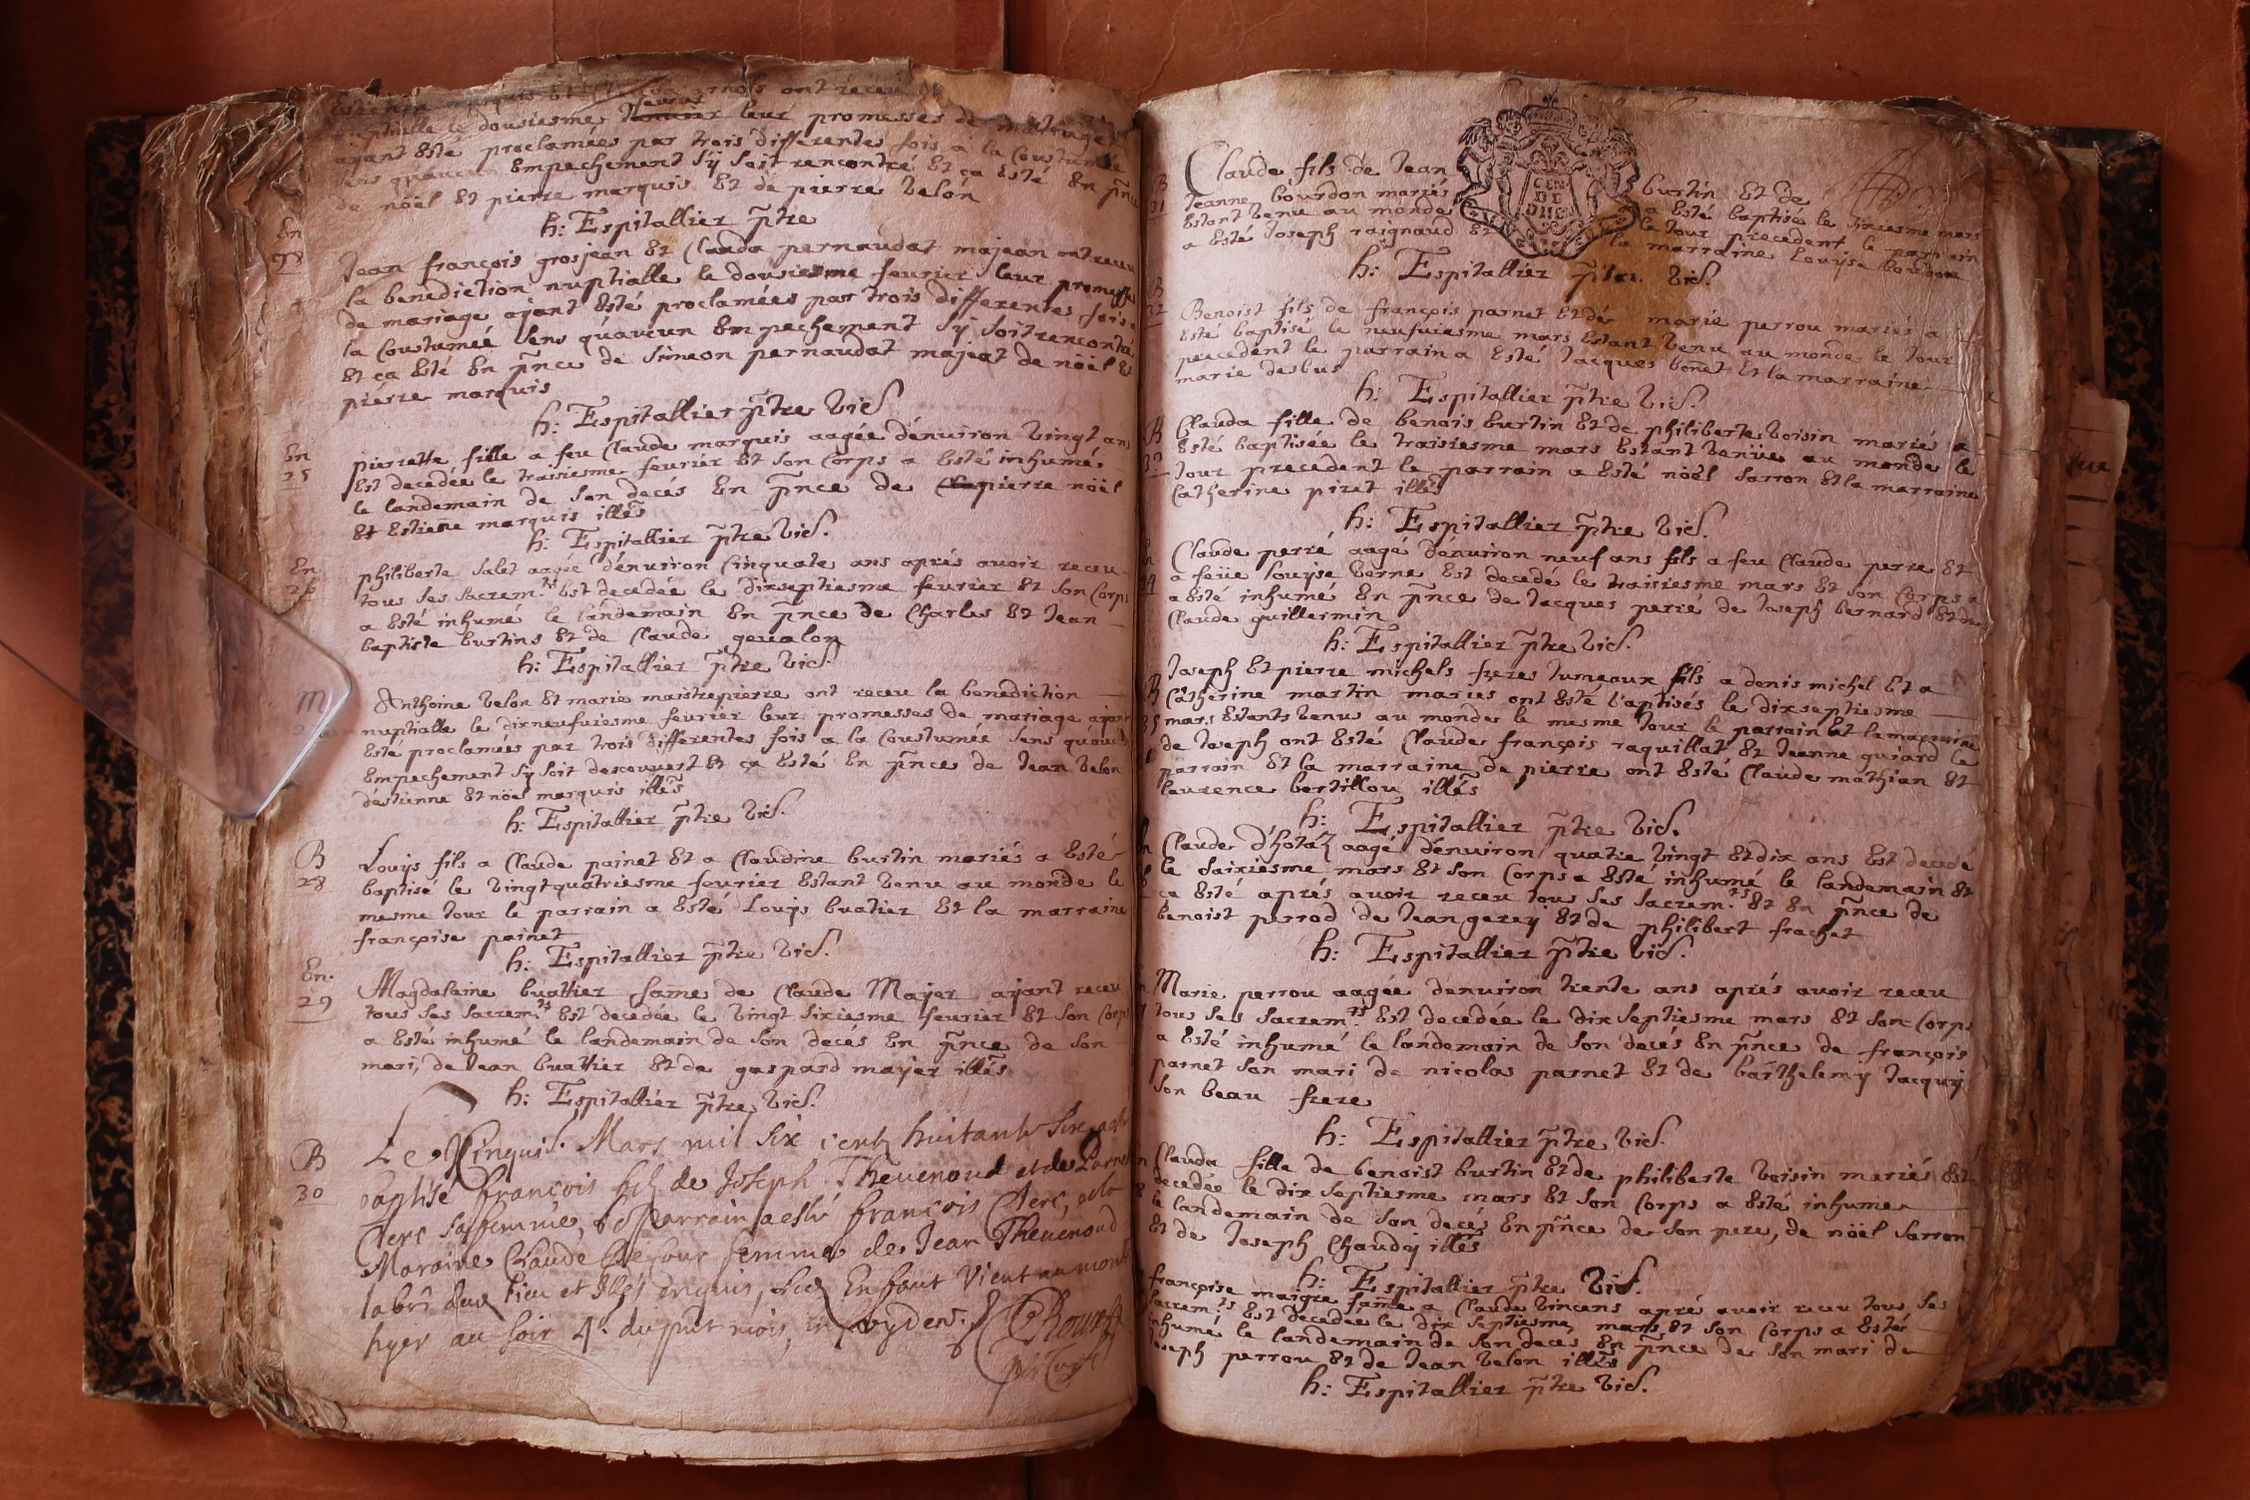 marquis et ont receu
nuptialle le dousiesme feurier leur promesses de mariage
ajant esté proclamées par trois differentes fois a la Coustumée
sens quaucun Empechement sÿ soit rencontré Et ça Esté En pñce
de nöel Et pierre marquis Et de pierre velon
h: Espitallier p̃tre
En
Jean françois grosjean Et Clauda pernaudat majean ont receu
la benediction nuptialle le dousiesme feurier leur promesses
de mariage ajant Esté proclamées par trois differentes fois a
la Coustumée sens quaucun Empechement sÿ soit rencontré
Et ça Esté En pñce de Simeon pernaudat majeat de nöel Et
pierre marquis
h: Espitallier p̃tre vic.
En
25
pierrette fille a feu Claude marquis aagée dénuiron vingt ans
Est decedée le traisiesme feurier Et son Corps a Esté inhumé
le landemain de son decés En pñce de pierre nöel
Et Estiene marquis illés
h: Espitallier p̃tre vic.
En
26
philiberte Salet aagée dénuiron Cinquate ans aprés auoir receu
tous ses sacrem.ts Est decedée le dixseptiesme feurier Et son Corps
a Esté inhumé le landemain En pñce de Charles Et Jean
baptiste burtins Et de Claude geualon
h: Espitallier p̃tre vic.
M
Anthoine velon Et marie maistrepierre ont receu la benediction
nuptialle le dixneufuiesme feurier leur promesses de mariage ajant
Esté proclamées par trois differentes fois a la Coustumée sens quaucun
Empechement sÿ soit descouuert Et ça Esté En pñce de Jean velon
déstienne Et nöel marquis illés
h: Espitallier p̃tre vic.
B
28
Louÿs fils a Claude painet Et a Claudine burtin mariés a Esté
baptisé le vingtquatriesme feurier Estant venu au monde le
mesme Jour le parrain a Esté Louÿs buatier Et la marraine
françoise painet
h: Espitallier p̃tre vic.
En.
29
Magdalaine buattier fame de Claude Majer ajant receu
tous ses sacrem.ts Est decedée le vingt sixiesme feurier Et son Corps
a Esté inhumé le landemain de son decés En pñce de son
mari, de Jean buattier Et de gaspard majer illés
h: Espitallier p̃tre vic.
B
30
Le Cinquis. Mars mil six cents huitante six a esté
baptisé françois fils de Joseph Theuenoud et de
Clerc sa femme, le Parrain a esté françois Clerc, et la
Maraine Claude femme de Jean Theuenoud
lieu et illés enquis, Led Enfant Vient au monde
hyer au soir 4.e du pñt mois,
B
31
Claude fils de Jean burtin Et de
Jeanne bourdon mariés a Esté baptisé le sixiesme mars
Estant venu au monde le Jour precedent le parrain
a Esté Joseph raignaud Et la marraine Louÿse bourdon
GEN
DE
h: Espitallier p̃tre. vic.
B
32
Benoist fils de françois parnet Et de marie perrou mariés a
Esté baptisé le neufuiesme mars Estant venu au monde le Jour
precedent le parrain a Esté Jacques bonet Et la marraine
marie desbus
h: Espitallier p̃tre vic.
B
33
Clauda fille de benois burtin Et de philiberte voisin mariés a
Esté baptisée le traisiesme mars Estant venüe au monde le
Jour precedent le parrain a Esté nöel sarron Et la marraine
Catherine piret illés
h: Espitallier p̃tre vic.
Claude perré aagé dénuiron neuf ans fils a feu Claude perre Et
a feüe louÿse berne Est decede le traisiesme mars Et son Corps a
a Esté inhumé En pñce de Jacques perré de Joseph bernard Et de
Claude guillermin
h: Espitallier p̃tre vic.
B
35
Joseph Et pierre michels freres Jumeaux fils a denis michel Et a
Catherine martin mariés ont Esté baptisés le dixseptiesme
mars Estants venus au monde le mesme Jour le parrain Et la marraine
de Joseph ont Esté Claude françois raquillat Et Jeanne guiard le
parrain Et la marraine de pierre ont Esté Claude mathian Et
laurence bertillou illés
h: Espitallier p̃tre vic.
Claude d'hotaz aagé dénuiron quatre vingt Et dix ans Est decede
le saixiesme mars Et son Corps a Esté inhumé le landemain Et
ça Esté aprés auoir receu tous ses sacrem.ts Et En pñce de
benoist perrod de Jean gerey Et de philibert frachet
h: Espitallier p̃tre vic.
Marie perrou aagée denuiron trente ans aprés auoir receu
tous ses sacrem.ts Est decedée le dix septiesme mars Et son Corps
a Esté inhumé le landemain de son decés En pñce de françois
parnet son mari de nicolas parnet Et de barthelemy Jacquÿ
son beau frere
h: Espitallier p̃tre vic.
Clauda fille de benoist burtin Et de philiberte voisin mariés Est
decedée le dix septiesme mars Et son Corps a Esté inhumé
le landemain de son decés En pñce de son pere, de nöel sarron
Et de Joseph Chaudÿ illés
h: Espitallier p̃tre vic.
françoise maigre fame a Claude vincens apré auoir receu tous ses
sacrem.ts Est decedée le dix septiesme mars Et son Corps a Esté
inhumé le landemain de son deces En pñce de son mari de
Joseph perrou Et de Jean velon illés
h: Espitallier p̃tre vic.